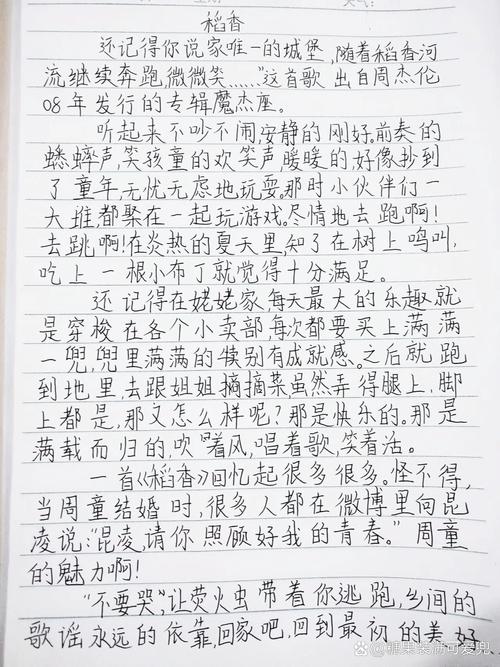 稻香
还记得你说家唯一的城堡,随着稻香河
流继续奔跑,微微笑……"这首歌出自周杰伦
08年发行的专辑魔杰座。
听起来不吵不闹,安静的刚好。前奏的
蟋蟀声,笑孩童的欢笑声,暖暖的好像抄到
了童年,无忧无虑地玩耍。那时小伙伴们一
大堆,都聚在一起玩游戏。尽情地去跑啊!
去跳啊!在炎热的夏天里,知了在树上鸣叫,
吃上一根小布丁就觉得十分满足。
还记得在姥姥家,每天最大的乐趣就
是穿梭在各个小卖部,每次都要买上满满
一兜,兜里满满的犊别有成就感。之后就跑
到地里,去跟姐姐摘摘菜,虽然弄得腿上,脚
上都是,那又怎么样呢?那是快乐的。那是
满载而归的,吹着风,唱着歌,笑着活。
一首《稻香》回忆起很多很多。怪不得,
当周童结婚时,很多人都在微博里向昆
凌说:"昆凌,请你照顾好我的青春。"周童
的魅力啊!
"不要哭,让荧火虫带着你逃跑,乡间的
歌谣永远的依靠,回家吧,回到最初的美好